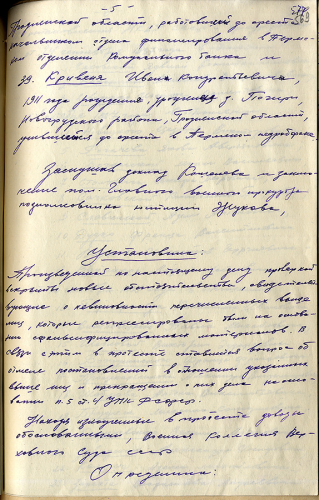 - 5 -
Гродненской области, работавшей до ареста
начальником отдела финансирования в Пермс-
ком отделении Коммунального банка и
39. Кривеня Ивана Кондратьевича,
1911 года рождения, уроженца д.
Новогрудского района, Гродненской области,
учившегося до ареста в Пермском педрабфаке.
Заслушав доклад и заклю-
чение пом. Главного военного прокурора
подполковника юстиции Жукова,
Установила:
Произведенной по настоящему делу проверкой
вскрыты новые обстоятельства, свидетельст-
вующие о невиновности перечисленных выше
лиц, которые репрессированы были на основа-
нии сфальсифицированных материалов. В
связи с этим в протесте ставится вопрос об
отмене постановлений в отношении указанных
выше лиц и прекращении о них дела на осно-
вании п. 5 ст. 4 УПК РСФСР.
Находя изложенные в протесте доводы
обоснованными, Военная Коллегия Вер-
ховного Суда СССР
Определила: